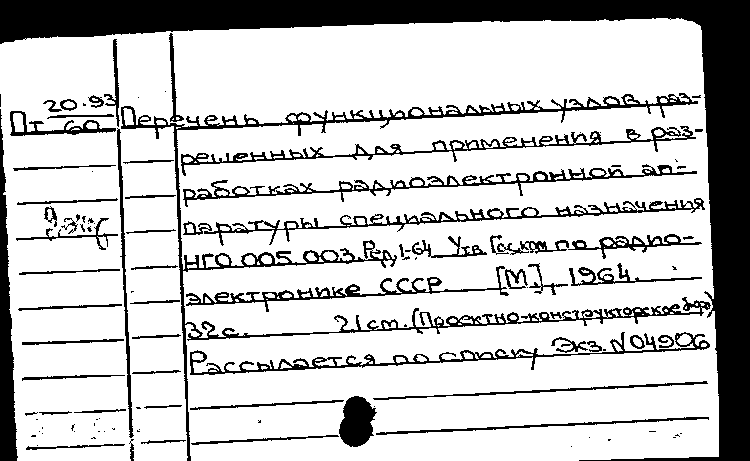 Пт 20.93/60 Перечень функциональных узлов, раз-
решенных для применения в раз-
работках радиоэлектронной ап-
паратуры специального назначения
НГО.005.003. Ред. 1-64 Утв Госком по радио-
электронике СССР. [М.], 1964.
32с. 21см. (Проектно-конструкторское бюро)
Рассылается по списку Экз. №04906